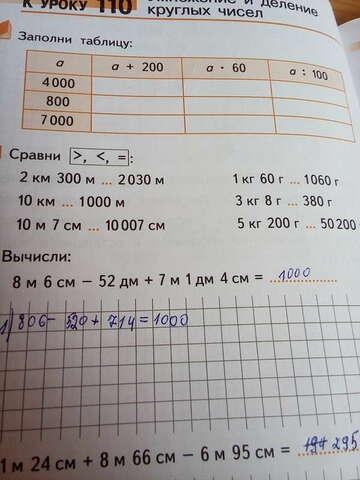 К УРОКУ 110 Умножение и деление
круглых чисел
Заполни таблицу:
a a + 200 a · 60 a : 100
4 000
800
7 000
Сравни >, <, = :
2 км 300 м ... 2 030 м 1 кг 60 г ... 1060 г
10 км ... 1000 м 3 кг 8 г ... 380 г
10 м 7 см ... 10 007 см 5 кг 200 г ... 50 200
Вычисли:
8 м 6 см − 52 дм + 7 м 1 дм 4 см = 1000
1) 806 − 520 + 714 = 1000
1 м 24 см + 8 м 66 см − 6 м 95 см = 295